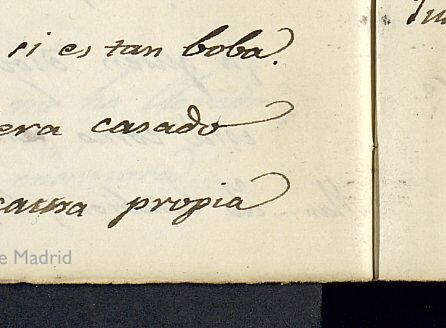 si es tan boba.
era casado
causa propia
e Madrid